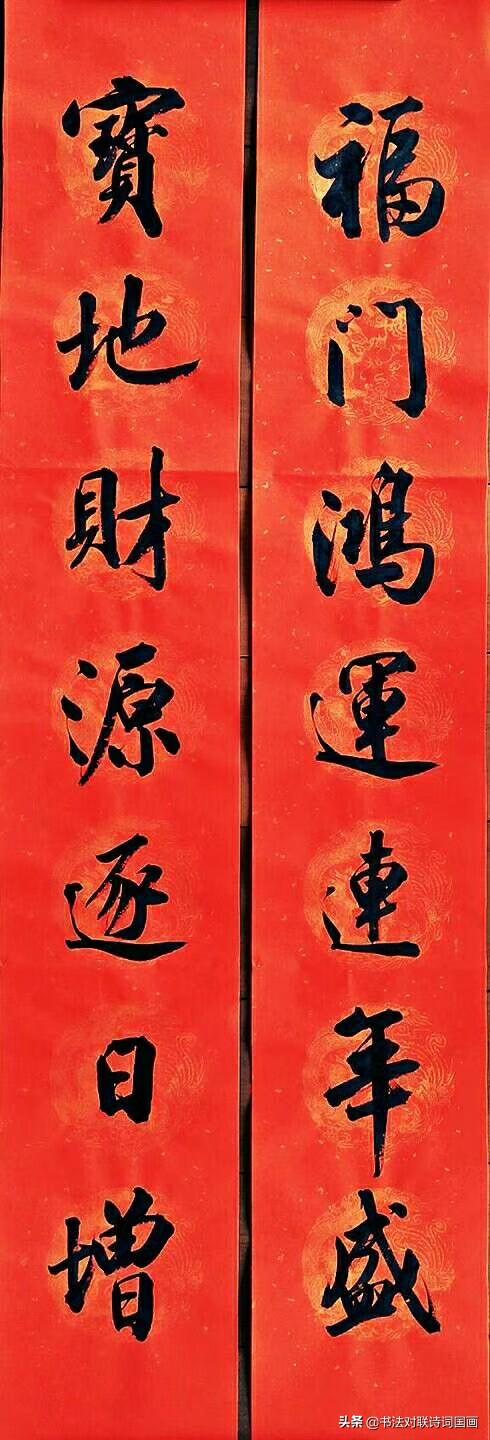 福门鸿運連年盛
寶地財源逐日增
头条 @书法对联诗词国画